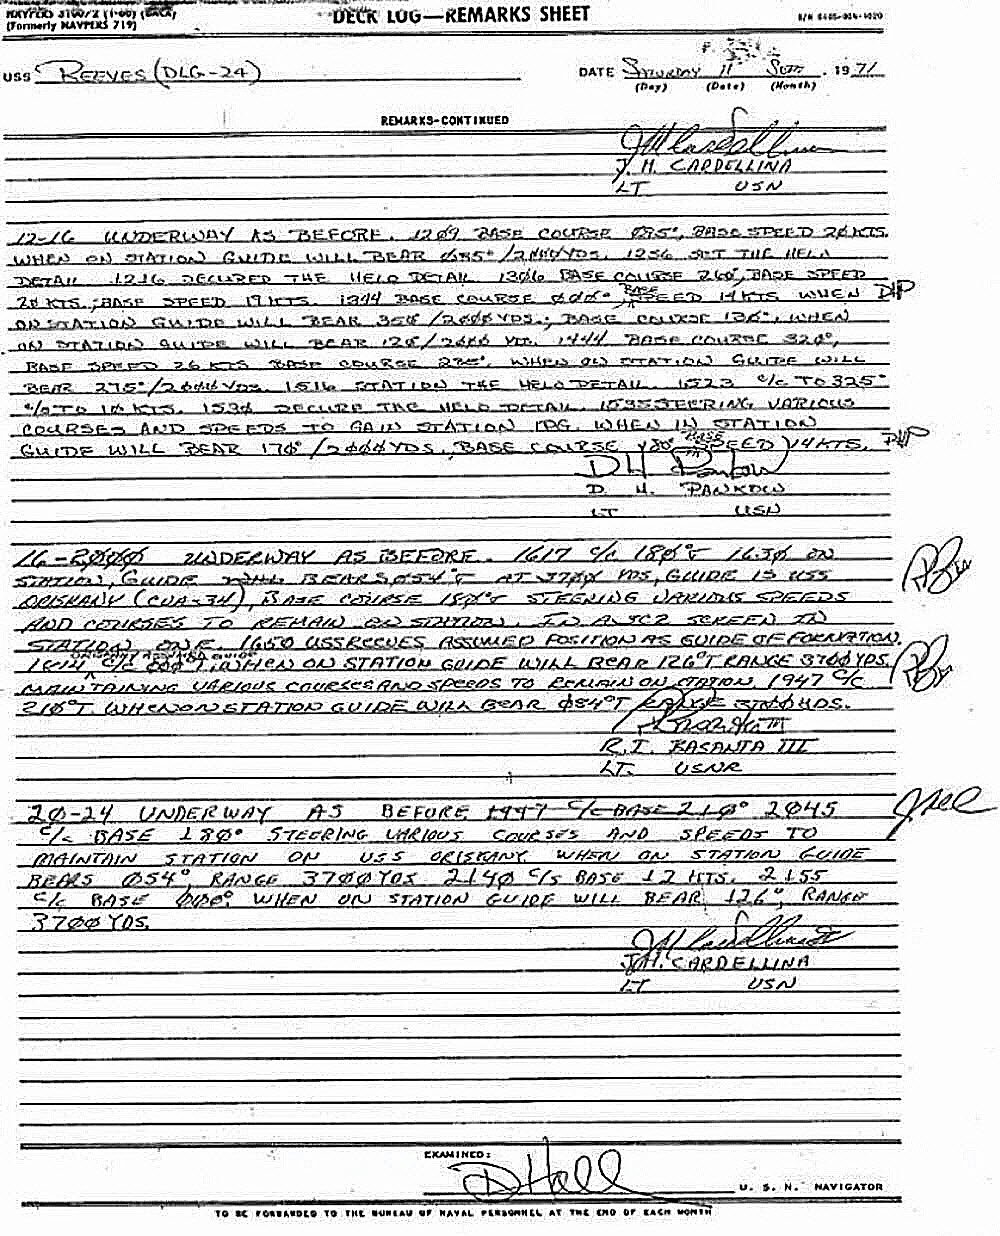 NAVPERS 3100/2 (1-60) (BACK)
(Formerly NAVPERS 719)
DECK LOG—REMARKS SHEET
USS REEVES (DLG-24)
DATE SATURDAY 11 SEPT, 1971
(Day) (Date) (Month)
REMARKS-CONTINUED
J. M. CARDELLINA
LT USN
12-16 UNDERWAY AS BEFORE. 1209 BASE COURSE 085°, BASE SPEED 20 KTS.
WHEN ON STATION GUIDE WILL BEAR /2000YDS. 1256 SET THE HELO
DETAIL 1216 SECURED THE HELO DETAIL 1306 BASE COURSE 260°, BASE SPEED
20 KTS.; BASE SPEED 17 KTS. 1344 BASE COURSE 000°, BASE SPEED 14 KTS WHEN DHP
ON STATION GUIDE WILL BEAR 350/2000 YDS.; BASE COURSE 130°, WHEN
ON STATION GUIDE WILL BEAR 120/2000 YD. 1444 BASE COURSE 320°,
BASE SPEED 26 KTS BASE COURSE WHEN ON STATION GUIDE WILL
BEAR 275°/2000YDS. 1516 STATION THE HELO DETAIL. 1523 C/C TO 325°
C/S TO 10 KTS. 1530 SECURE THE HELO DETAIL. 1535 STEERING VARIOUS
COURSES AND SPEEDS TO GAIN STATION WHEN IN STATION
GUIDE WILL BEAR 170°/2000YDS. BASE COURSE 180° BASE SPEED 14 KTS. DHP
D. H. PANKOW
LT USN
16-2000 UNDERWAY AS BEFORE. 1617 C/C 180°T 1630 ON
STATION, GUIDE BEARS 054°T AT 3700 YDS, GUIDE IS USS
ORISKANY (CVA-34), BASE COURSE 180°T STEERING VARIOUS SPEEDS
AND COURSES TO REMAIN ON STATION. IN A SCREEN IN
STATION ONE. 1650 USS REEVES ASSUMED POSITION AS GUIDE OF FORMATION.
ORISKANY ASSUMED GUIDE
1814 C/C 000°T, WHEN ON STATION GUIDE WILL BEAR 126°T RANGE 3700YDS.
MAINTAINING VARIOUS COURSES AND SPEEDS TO REMAIN ON STATION. 1947 C/C
210°T WHEN ON STATION GUIDE WILL BEAR 084°T RANGE 3700 YDS.
R. I. BASANTA III
LT. USNR
20-24 UNDERWAY AS BEFORE 1947 C/C BASE 210° 2045
C/C BASE 180° STEERING VARIOUS COURSES AND SPEEDS TO
MAINTAIN STATION ON USS ORISKANY. WHEN ON STATION GUIDE
BEARS 054°, RANGE 3700 YDS. 2140 C/S BASE 12 KTS. 2155
C/C BASE 000°. WHEN ON STATION GUIDE WILL BEAR 126°, RANGE
3700 YDS.
J.M. CARDELLINA
LT USN
EXAMINED:
D Hall
U. S. N. NAVIGATOR
TO BE FORWARDED TO THE BUREAU OF NAVAL PERSONNEL AT THE END OF EACH MONTH